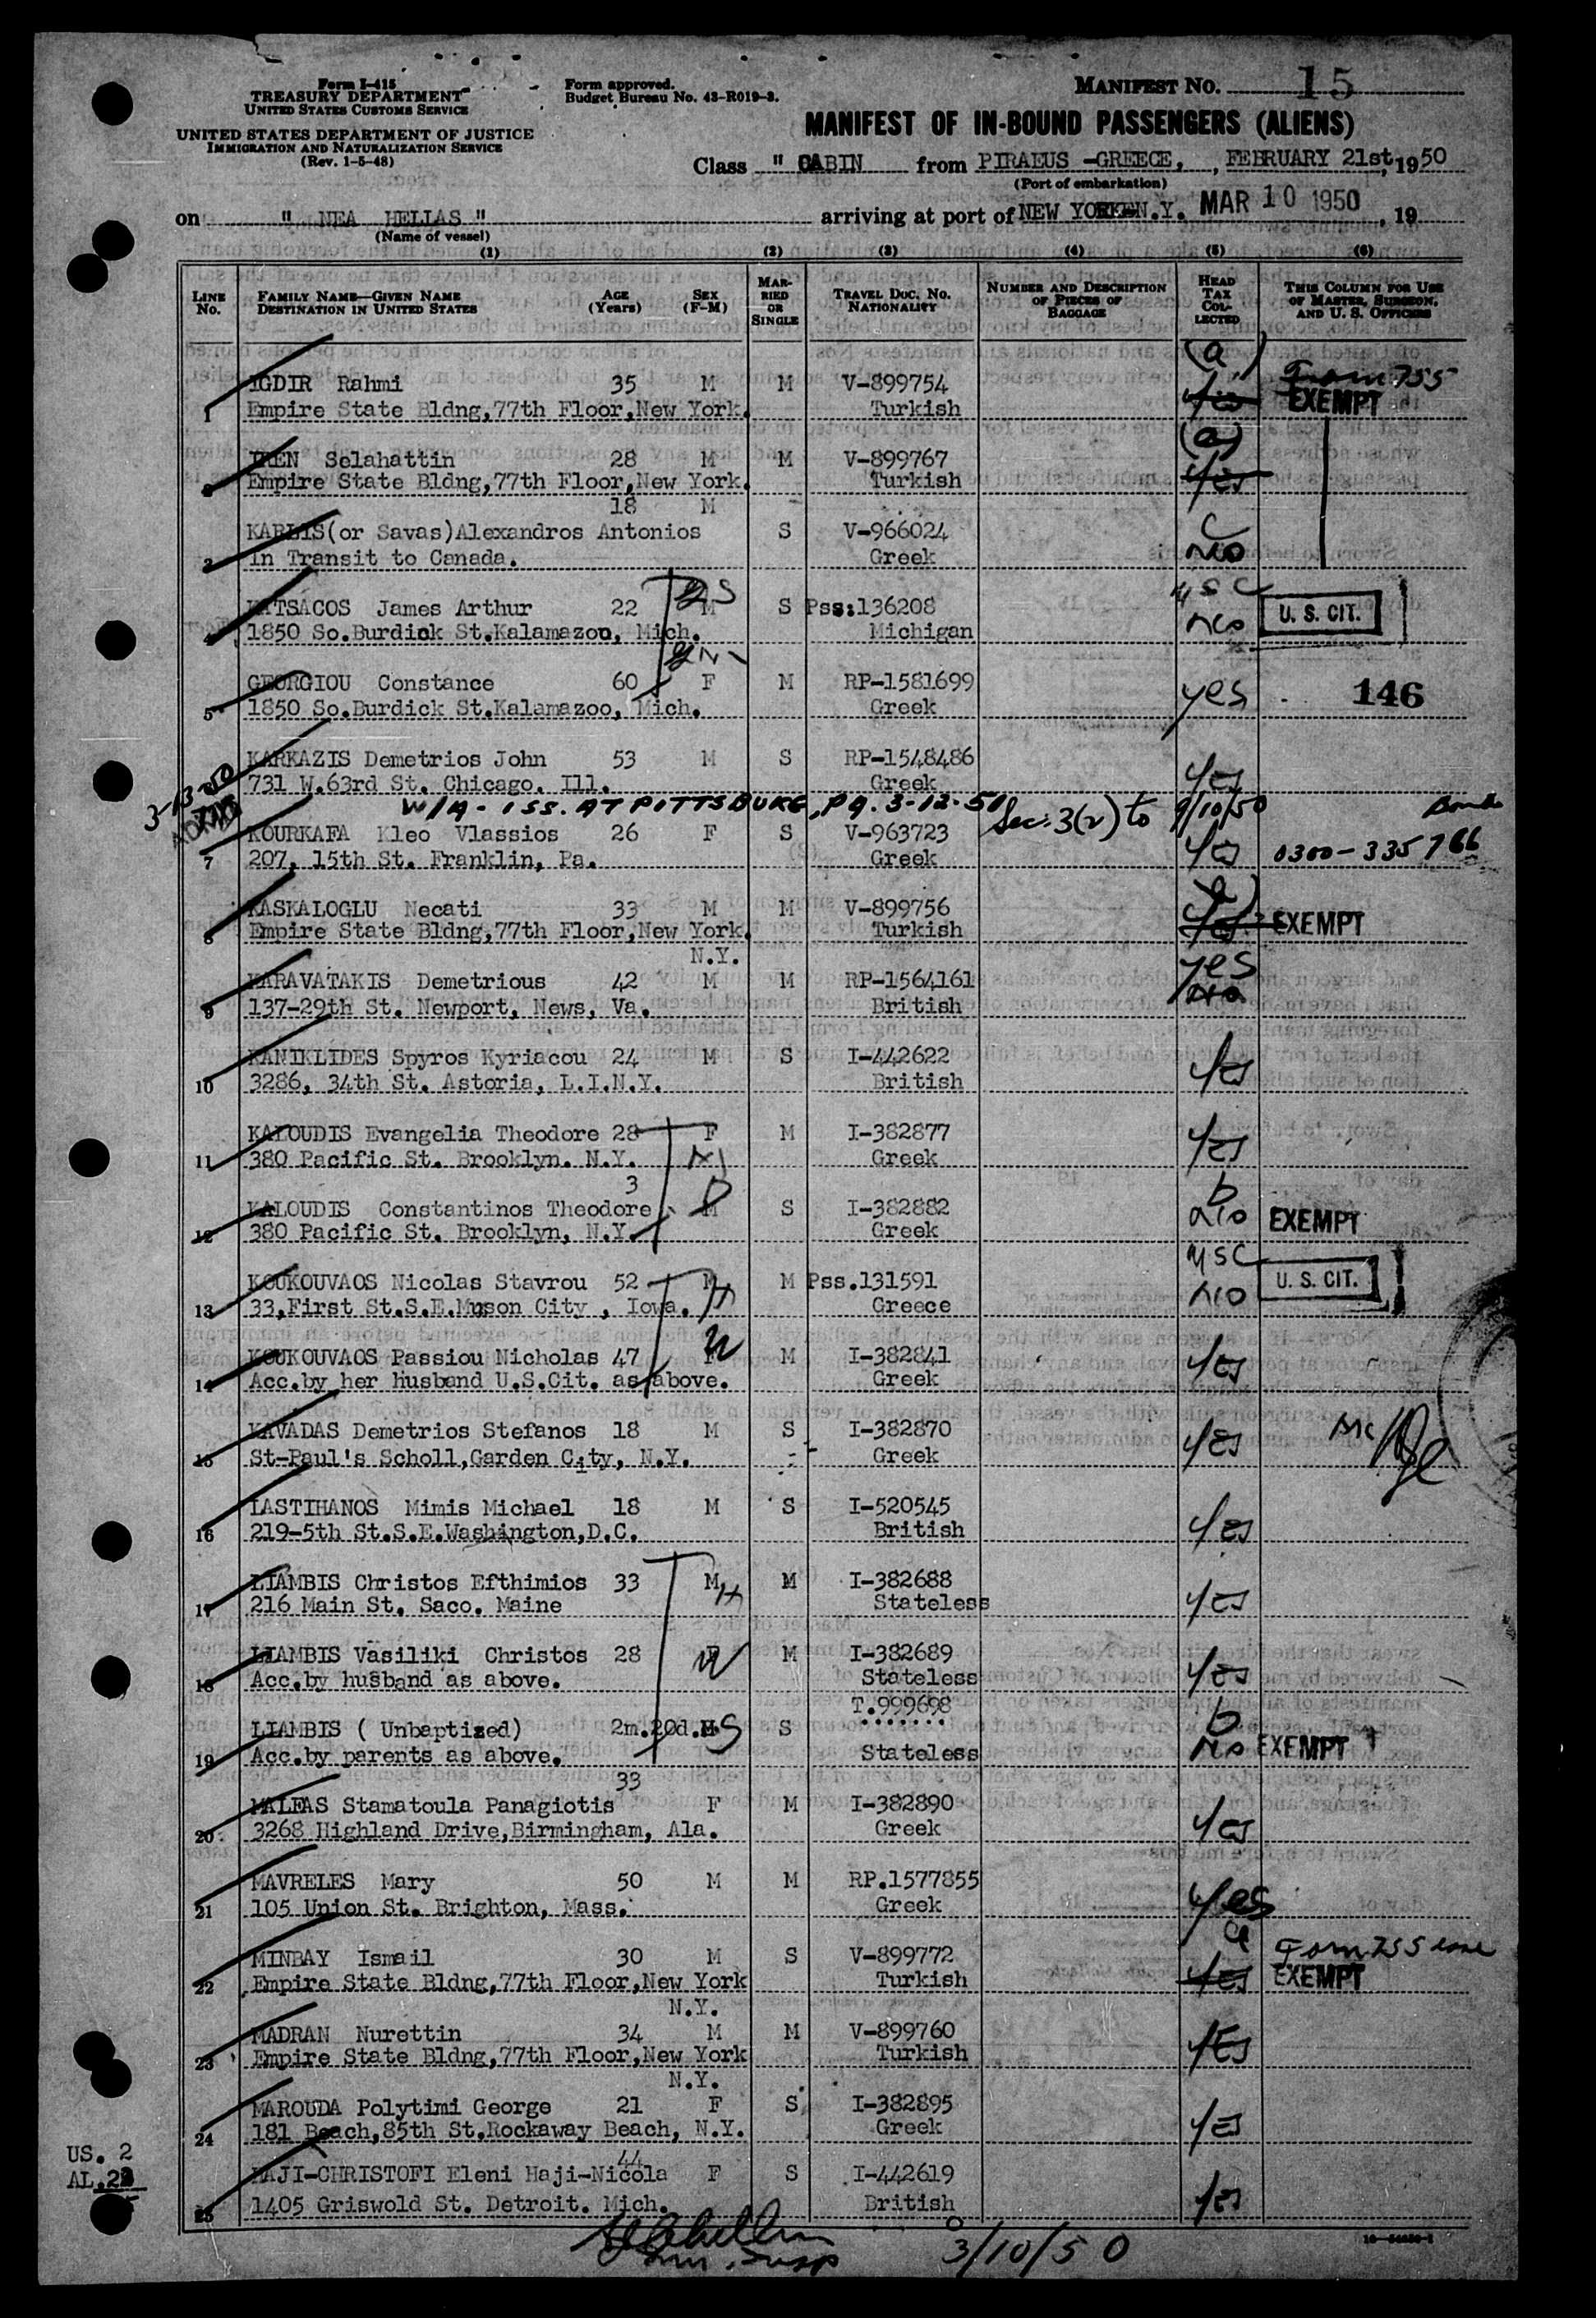 Form I-415
TREASURY DEPARTMENT
UNITED STATES CUSTOMS SERVICE
UNITED STATES DEPARTMENT OF JUSTICE
IMMIGRATION AND NATURALIZATION SERVICE
(Rev. 1-5-48)
Form approved.
Budget Bureau No. 43-R019-3.
MANIFEST NO. 15
MANIFEST OF IN-BOUND PASSENGERS (ALIENS)
Class " CABIN from PIRAEUS -GREECE, , FEBRUARY 21st, 1950
(Port of embarkation)
on " NEA HELLAS " arriving at port of NEW YORK N.Y. MAR 10 1950 , 19
(Name of vessel)
(1) (2) (3) (4) (5) (6)
LINE No. FAMILY NAME—GIVEN NAME DESTINATION IN UNITED STATES AGE (Years) SEX (F-M) MARRIED OR SINGLE TRAVEL DOC. NO. NATIONALITY NUMBER AND DESCRIPTION OF PIECES OF BAGGAGE HEAD TAX COLLECTED THIS COLUMN FOR USE OF MASTER, SURGEON, AND U. S. OFFICERS
(a) Form 755
IGDIR Rahmi 35 M M V-899754 yes EXEMPT
1 Empire State Bldng,77th Floor,New York. Turkish
(a)
IREN Selahattin 28 M M V-899767
Empire State Bldng,77th Floor,New York. Turkish yes
18 M
KARLIS(or Savas)Alexandros Antonios S V-966024 C
3 In Transit to Canada. Greek no
KATSACOS James Arthur 22 M S Pss:136208 USC U. S. CIT.
4 1850 So.Burdick St.Kalamazoo, Mich. Michigan no
GEORGIOU Constance 60 F M RP-1581699 yes 146
5 1850 So.Burdick St.Kalamazoo, Mich. Greek
KARKAZIS Demetrios John 53 M S RP-1548486
731 W.63rd St. Chicago. Ill. Greek yes
3-13-50 W/A - ISS. AT PITTSBURG, PA. 3-12-51 Sec. 3(2) to 9/10/50
KOURKAFA Kleo Vlassios 26 F S V-963723 yes 0300-335766
7 207, 15th St. Franklin, Pa. Greek
KASKALOGLU Necati 33 M M V-899756 yes EXEMPT
8 Empire State Bldng,77th Floor,New York. Turkish
N.Y.
KARAVATAKIS Demetrious 42 M M RP-1564161 yes
9 137-29th St. Newport, News, Va. British no
KANIKLIDES Spyros Kyriacou 24 M S I-442622 yes
10 3286, 34th St. Astoria, L.I.N.Y. British
KALOUDIS Evangelia Theodore 28 F M I-382877 yes
11 380 Pacific St. Brooklyn. N.Y. Greek
3
KALOUDIS Constantinos Theodore M S I-382882 b
12 380 Pacific St. Brooklyn, N.Y. Greek no EXEMPT
KOUKOUVAOS Nicolas Stavrou 52 M M Pss.131591 USC U. S. CIT.
13 33,First St.S.E.Muson City , Iowa. Greece no
KOUKOUVAOS Passiou Nicholas 47 F M I-382841 yes
14 Acc.by her husband U.S.Cit. as above. Greek
KAVADAS Demetrios Stefanos 18 M S I-382870 yes
15 St-Paul's Scholl,Garden City, N.Y. Greek
LASTIHANOS Mimis Michael 18 M S I-520545
16 219-5th St.S.E.Washington,D.C. British yes
LIAMBIS Christos Efthimios 33 M M I-382688
17 216 Main St. Saco. Maine Stateless yes
LIAMBIS Vasiliki Christos 28 F M I-382689
18 Acc.by husband as above. Stateless yes
T.999698
LIAMBIS ( Unbaptized) 2m.20d. S b
19 Acc.by parents as above. Stateless no EXEMPT
33
MALFAS Stamatoula Panagiotis F M I-382890
20 3268 Highland Drive,Birmingham, Ala. Greek yes
MAVRELES Mary 50 M M RP.1577855
21 105 Union St. Brighton, Mass. Greek yes
a Form 755
MINBAY Ismail 30 M S V-899772
22 Empire State Bldng,77th Floor,New York Turkish yes EXEMPT
N.Y.
MADRAN Nurettin 34 M M V-899760
23 Empire State Bldng,77th Floor,New York Turkish yes
N.Y.
MAROUDA Polytimi George 21 F S I-382895
24 181 Beach,85th St.Rockaway Beach, N.Y. Greek yes
44
HAJI-CHRISTOFI Eleni Haji-Nicola F S I-442619
25 1405 Griswold St. Detroit. Mich. British yes
US. 2
AL.
3/10/50